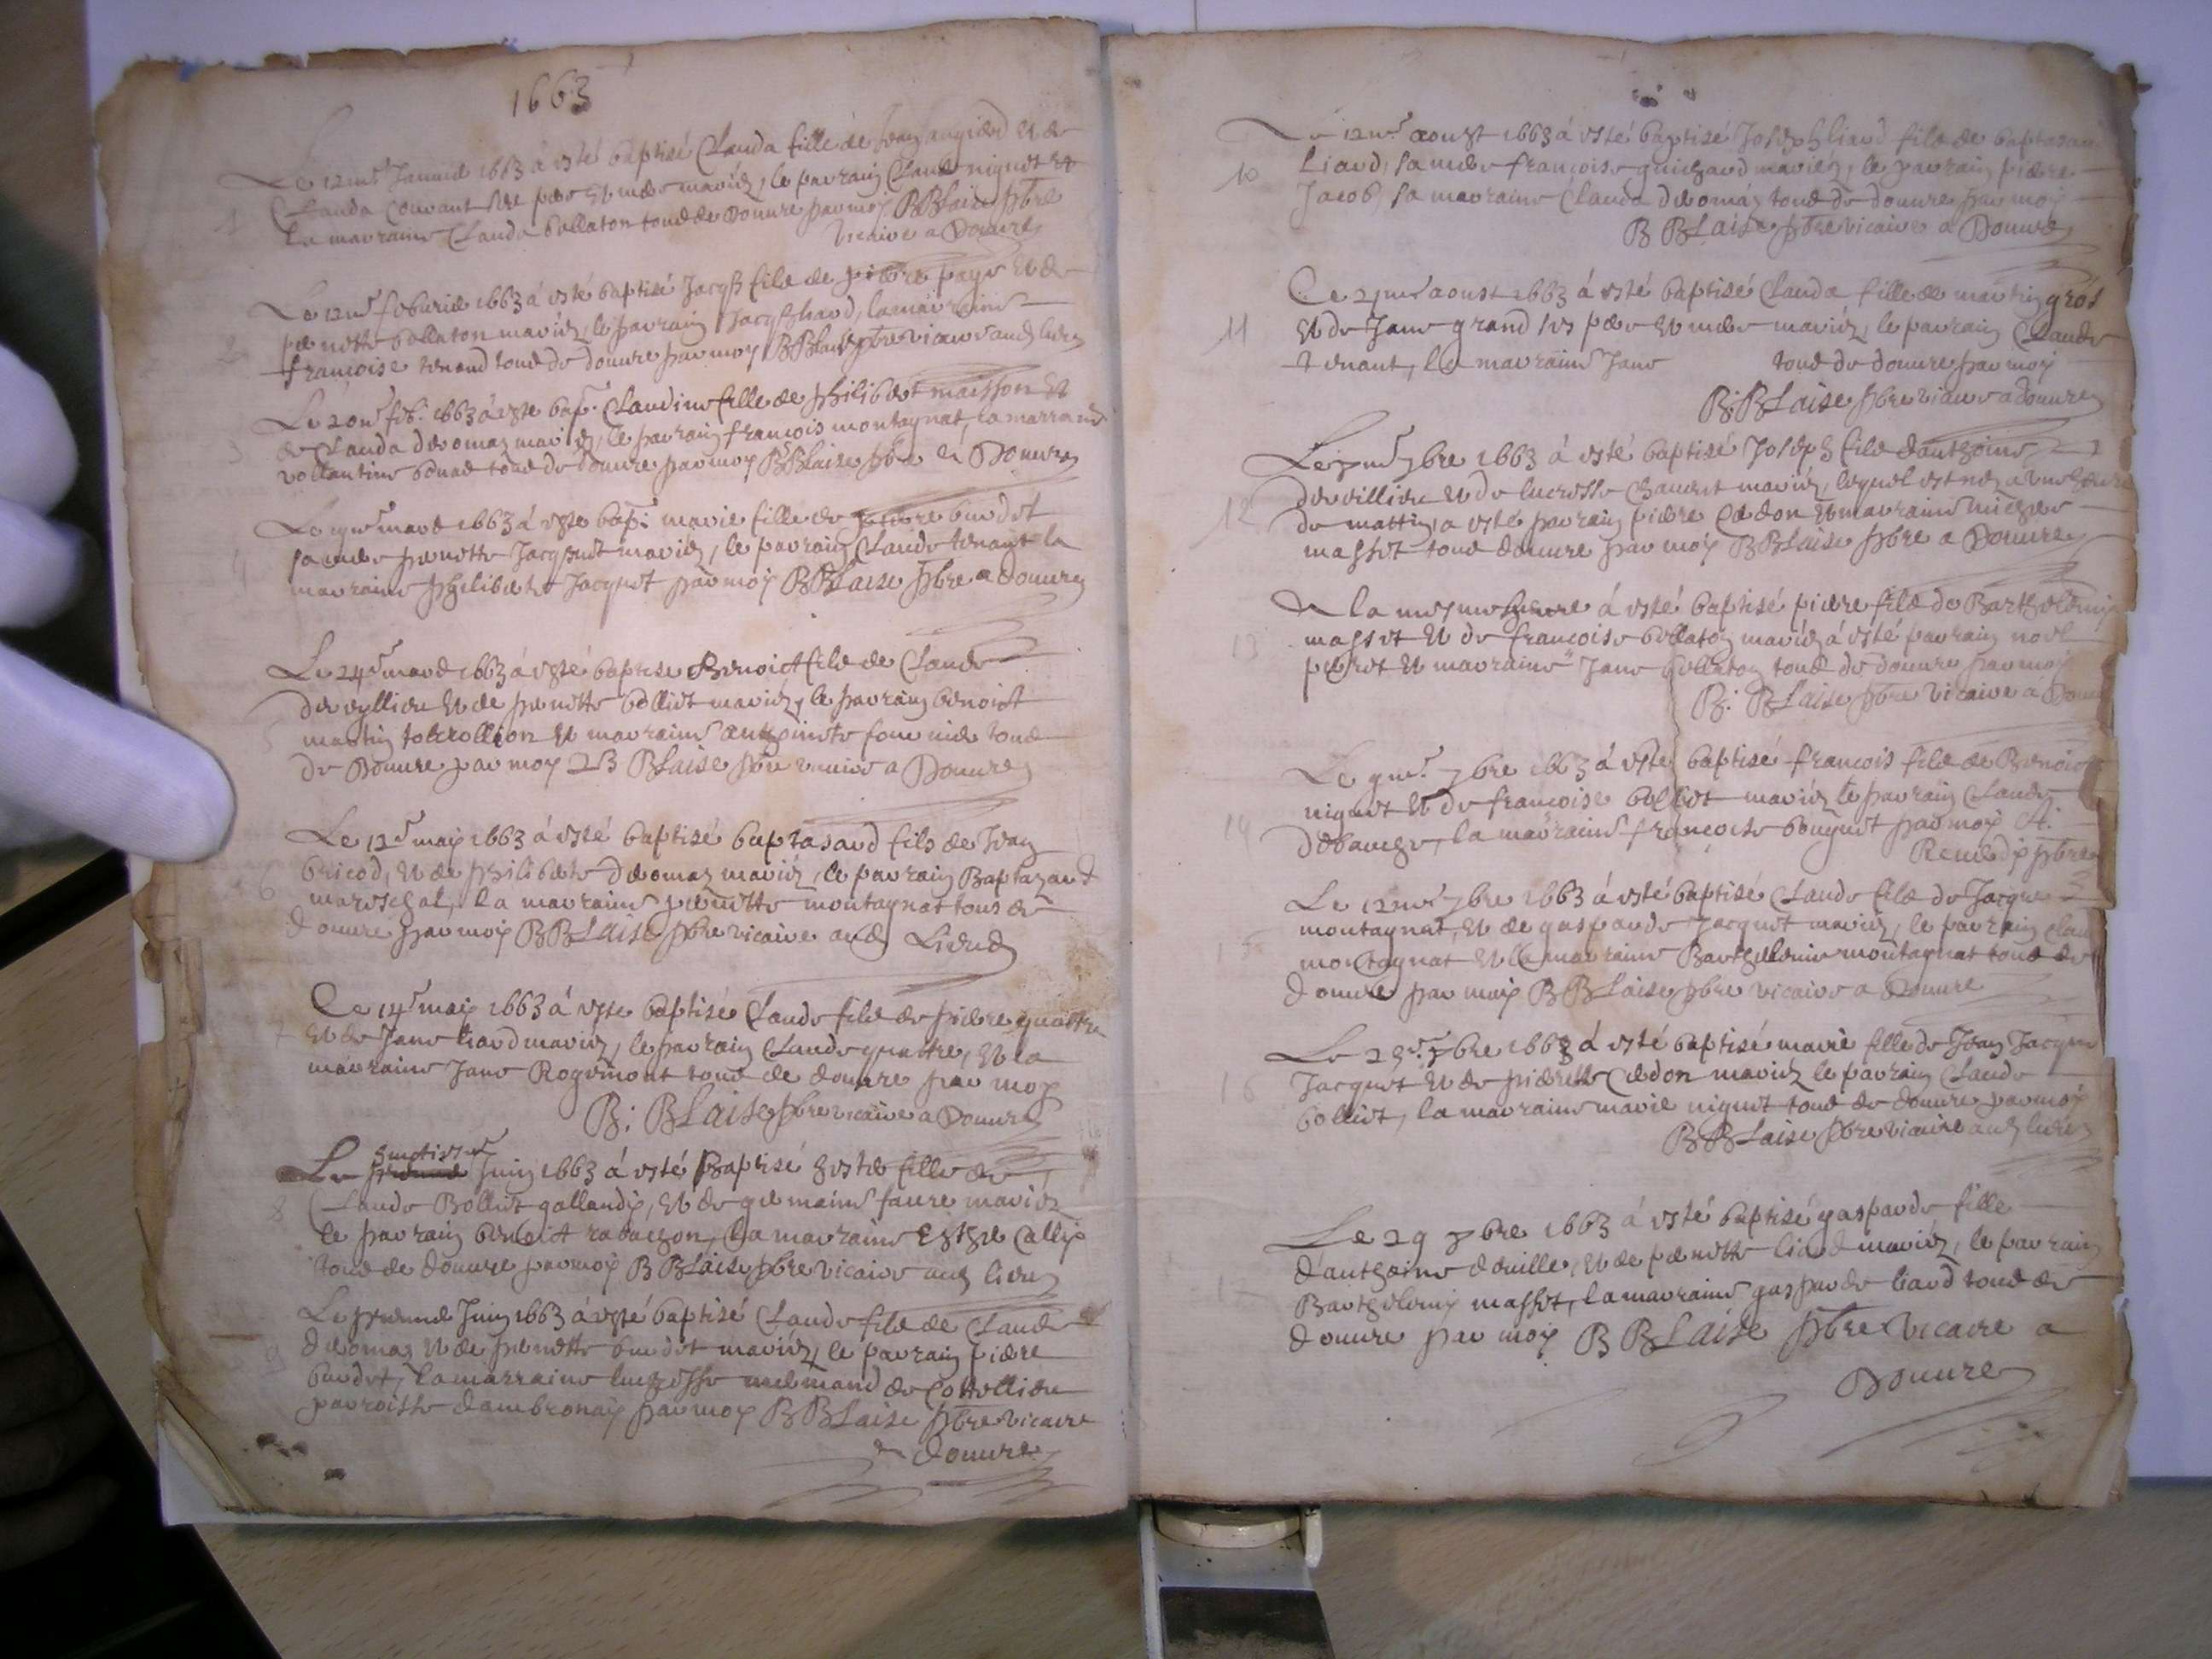 1663
Le 12me Januier 1663 à esté baptisé Clauda fille de Jean angierd et de
1 Clauda Couuant ses pere et mere mariez, le parrain Claude niquet et
la marraine Clauda bollaton tous de Douure par moy BBLaise pbre
vicaire a Douure
Le 12me feburier 1663 à esté baptisé Jacqs filz de pierre et de
2 pernette bollaton mariez, le parrain Jacqs la marraine
françoise tenand tous de douure par moy BBLaise pbre vicaire audz lieux
Le 20me feb. 1663 à esté bap. Claudine fille de philibert maisson et
3 de Clauda deromaz mariez, le parrain françois montagnat, la marraine
vollantine tous de douure par moy BBLaise pbre a Douure
Le mars 1663 à esté bap. marie fille de pierre burdet
4 sa mere pernette Jacquet mariez, le parrain Claude tenant la
marraine philiberte Jacquet par moy BBLaise pbre a douure
Le 24e mars 1663 à esté baptisé Benoict filz de Claude
dervyllieu et de pernette bolliet mariez, le parrain benoict
5 martin et marraine anthoinete tous
de Douure par moy B BLaise pbre vicaire a Douure
Le 12e may 1663 à esté baptisé baptasard fils de Jean
bricod, et de philiberte deromaz mariez, le parrain Baptazard
6 mareschal, la marraine pernette montagnat tous de
douure par moy BBLaise pbre vicaire audz Lieux
Le 14e may 1663 à esté baptisé Claude filz de pierre quattre
7 et de Jane liard mariez, le parrain Claude quattre, et la
marraine Jane Rogemont tous de douure par moy
B: BLaise pbre vicaire a Douure
huictiesme
Le Juin 1663 à esté Baptisé hester fille de
8 Claude Bolliet gallandy, et de germaine faure mariez
le parrain benoict rauachon, la marraine Esther Callip
tous de douure par moy BBLaise pbre vicaire audz lieux
Le Juin 1663 à esté baptisé Claude filz de Claude
9 deromaz et de pernette burdet mariez, le parrain pierre
burdet, la marraine lucresse de Cottellieu
parroisse dambronay par moy BBLaise pbre vicaire
a douure
Le 12me aoust 1663 à esté baptisé Joseph liard filz de baptasard
10 liard, sa mere françoise guichard mariez, le parrain pierre
Jacob, sa marraine Clauda deromaz tous de douure par moy
B BLaise pbre vicaire a Douure
Le aoust 1663 à esté baptisé Clauda fille de martin gros
11 et de Jane grand ses pere et mere mariez, le parrain Claude
tenant, la marraine Jane tous de douure par moy
B: BLaise pbre vicaire a douure
Le 7bre 1663 à esté baptisé Joseph filz danthoine
dervillieu et de lucresse mariez, lequel est nez a une heure
12 de mattin, a esté parrain pierre Cedon et marraine
masset tous douure par moy BBLaise pbre a Douure
A la mesme heure à esté baptisé pierre filz de Barthelemy
13 masset et de françoise bollaton mariez à esté parrain noel
perret et marraine Jane bollaton tous de douure par moy
B: BLaise pbre vicaire a Douure
Le 7bre 1663 à esté baptisé françois filz de Benoict
niquet et de françoise bolliet mariez le parrain Claude
14 debauge, la marraine françoise bouquet par moy A.
Remedy pbre
Le 12me 7bre 1663 à esté baptisé Claude filz de Jacque
montagnat, et de gasparde Jacquet mariez, le parrain Claude
15 montagnat et la marraine Barthelemie montagnat tous de
douure par moy BBLaise pbre vicaire a Douure
Le 7bre 1663 à esté baptisé marie fille de Jean Jacque
16 Jacquet et de pierrette Cedon mariez le parrain Claude
bolliet, la marraine marie niquet tous de douure par moy
BBLaise pbre vicaire audz lieux
Le 29 7bre 1663 à esté baptisé gasparde fille
d'anthoine douille, et de pernette liard mariez, le parrain
17 Barthelemy masset, la marraine gasparde liard tous de
douure par moy B BLaise pbre vicaire a
Douure